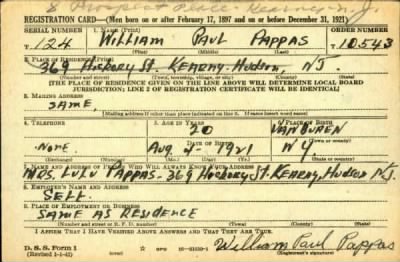 8 Prospect Place - Kearny N.J.
REGISTRATION CARD—(Men born on or after February 17, 1897 and on or before December 31, 1921)
SERIAL NUMBER 1. NAME (Print) ORDER NUMBER
T 124 WILLIAM PAUL PAPPAS 10543
(First) (Middle) (Last)
2. PLACE OF RESIDENCE (Print)
369 HICKORY ST. KEARNY. HUDSON, N.J.
(Number and street) (Town, township, village, or city) (County) (State)
[THE PLACE OF RESIDENCE GIVEN ON THE LINE ABOVE WILL DETERMINE LOCAL BOARD
JURISDICTION; LINE 2 OF REGISTRATION CERTIFICATE WILL BE IDENTICAL]
3. MAILING ADDRESS
SAME.
[Mailing address if other than place indicated on line 2. If same insert word same]
4. TELEPHONE 5. AGE IN YEARS 6. PLACE OF BIRTH
20 VAN BUREN
NONE DATE OF BIRTH (Town or county)
AUG 4 - 1921 N Y
(Exchange) (Number) (Mo.) (Day) (Yr.) (State or country)
7. NAME AND ADDRESS OF PERSON WHO WILL ALWAYS KNOW YOUR ADDRESS
MRS. LULU PAPPAS. 369 HICKORY ST. KEARNY, HUDSON N.J.
8. EMPLOYER'S NAME AND ADDRESS
SELF.
9. PLACE OF EMPLOYMENT OR BUSINESS
SAME AS RESIDENCE
(Number and street or R. F. D. number) (Town) (County) (State)
I AFFIRM THAT I HAVE VERIFIED ABOVE ANSWERS AND THAT THEY ARE TRUE.
D. S. S. Form 1 GPO
(Revised 1-1-42) (over) William Paul Pappas
(Registrant's signature)